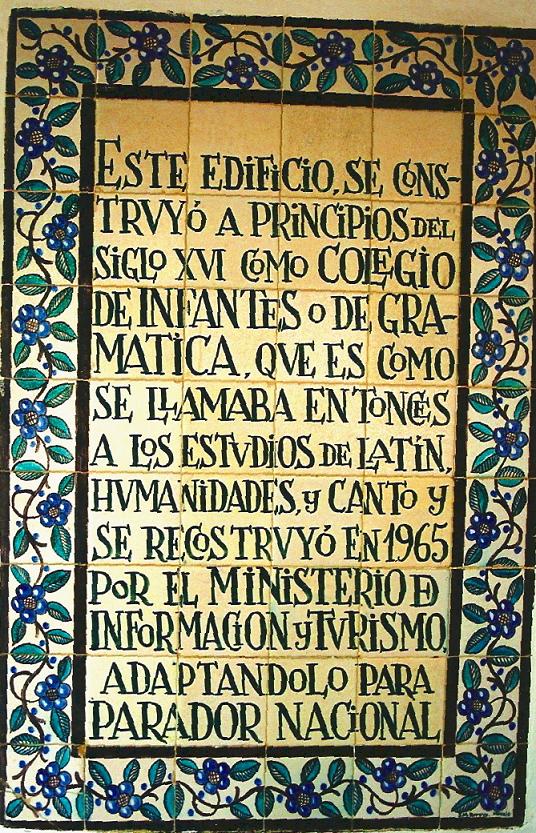 ESTE EDIFICIO, SE CONS-
TRVYÓ A PRINCIPIOS DEL
SIGLO XVI COMO COLEGIO
DE INFANTES O DE GRA-
MATICA, QVE ES COMO
SE LLAMABA ENTONCES
A LOS ESTVDIOS DE LATÍN,
HVMANIDADES, y CANTO y
SE RECOSTRVYÓ EN 1965
POR EL MINISTERIO DE
INFORMACION y TVRISMO,
ADAPTANDOLO PARA
PARADOR NACIONAL